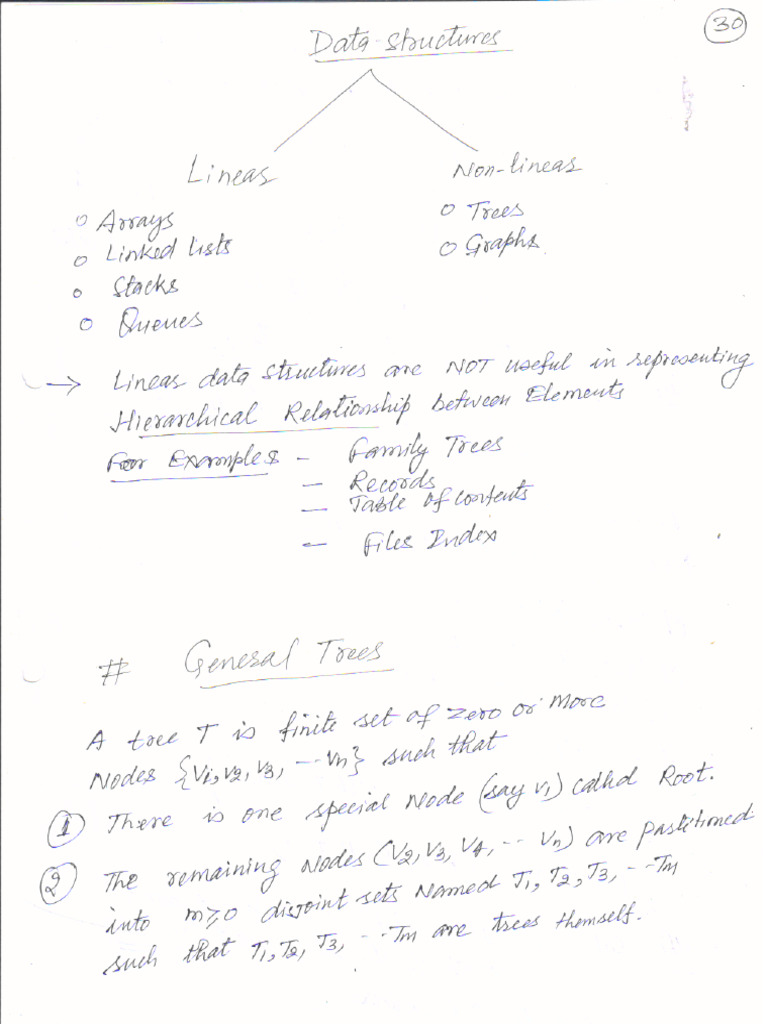 30
Data structures
Linear
Non-linear
o Arrays
o Linked lists
o Stacks
o Queues
o Trees
o Graphs
→ Linear data structures are NOT useful in representing
Hierarchical Relationship between Elements
For Examples - Family Trees
- Records
- Table of contents
- Files Index
# General Trees
A tree T is finite set of zero or more
Nodes {V1, V2, V3, --- Vn} such that
① There is one special Node (say V1) called Root.
② The remaining Nodes (V2, V3, V4, --- Vn) are partitioned
into m≥0 disjoint sets Named T1, T2, T3, --- Tm
such that T1, T2, T3, --- Tm are trees themself.